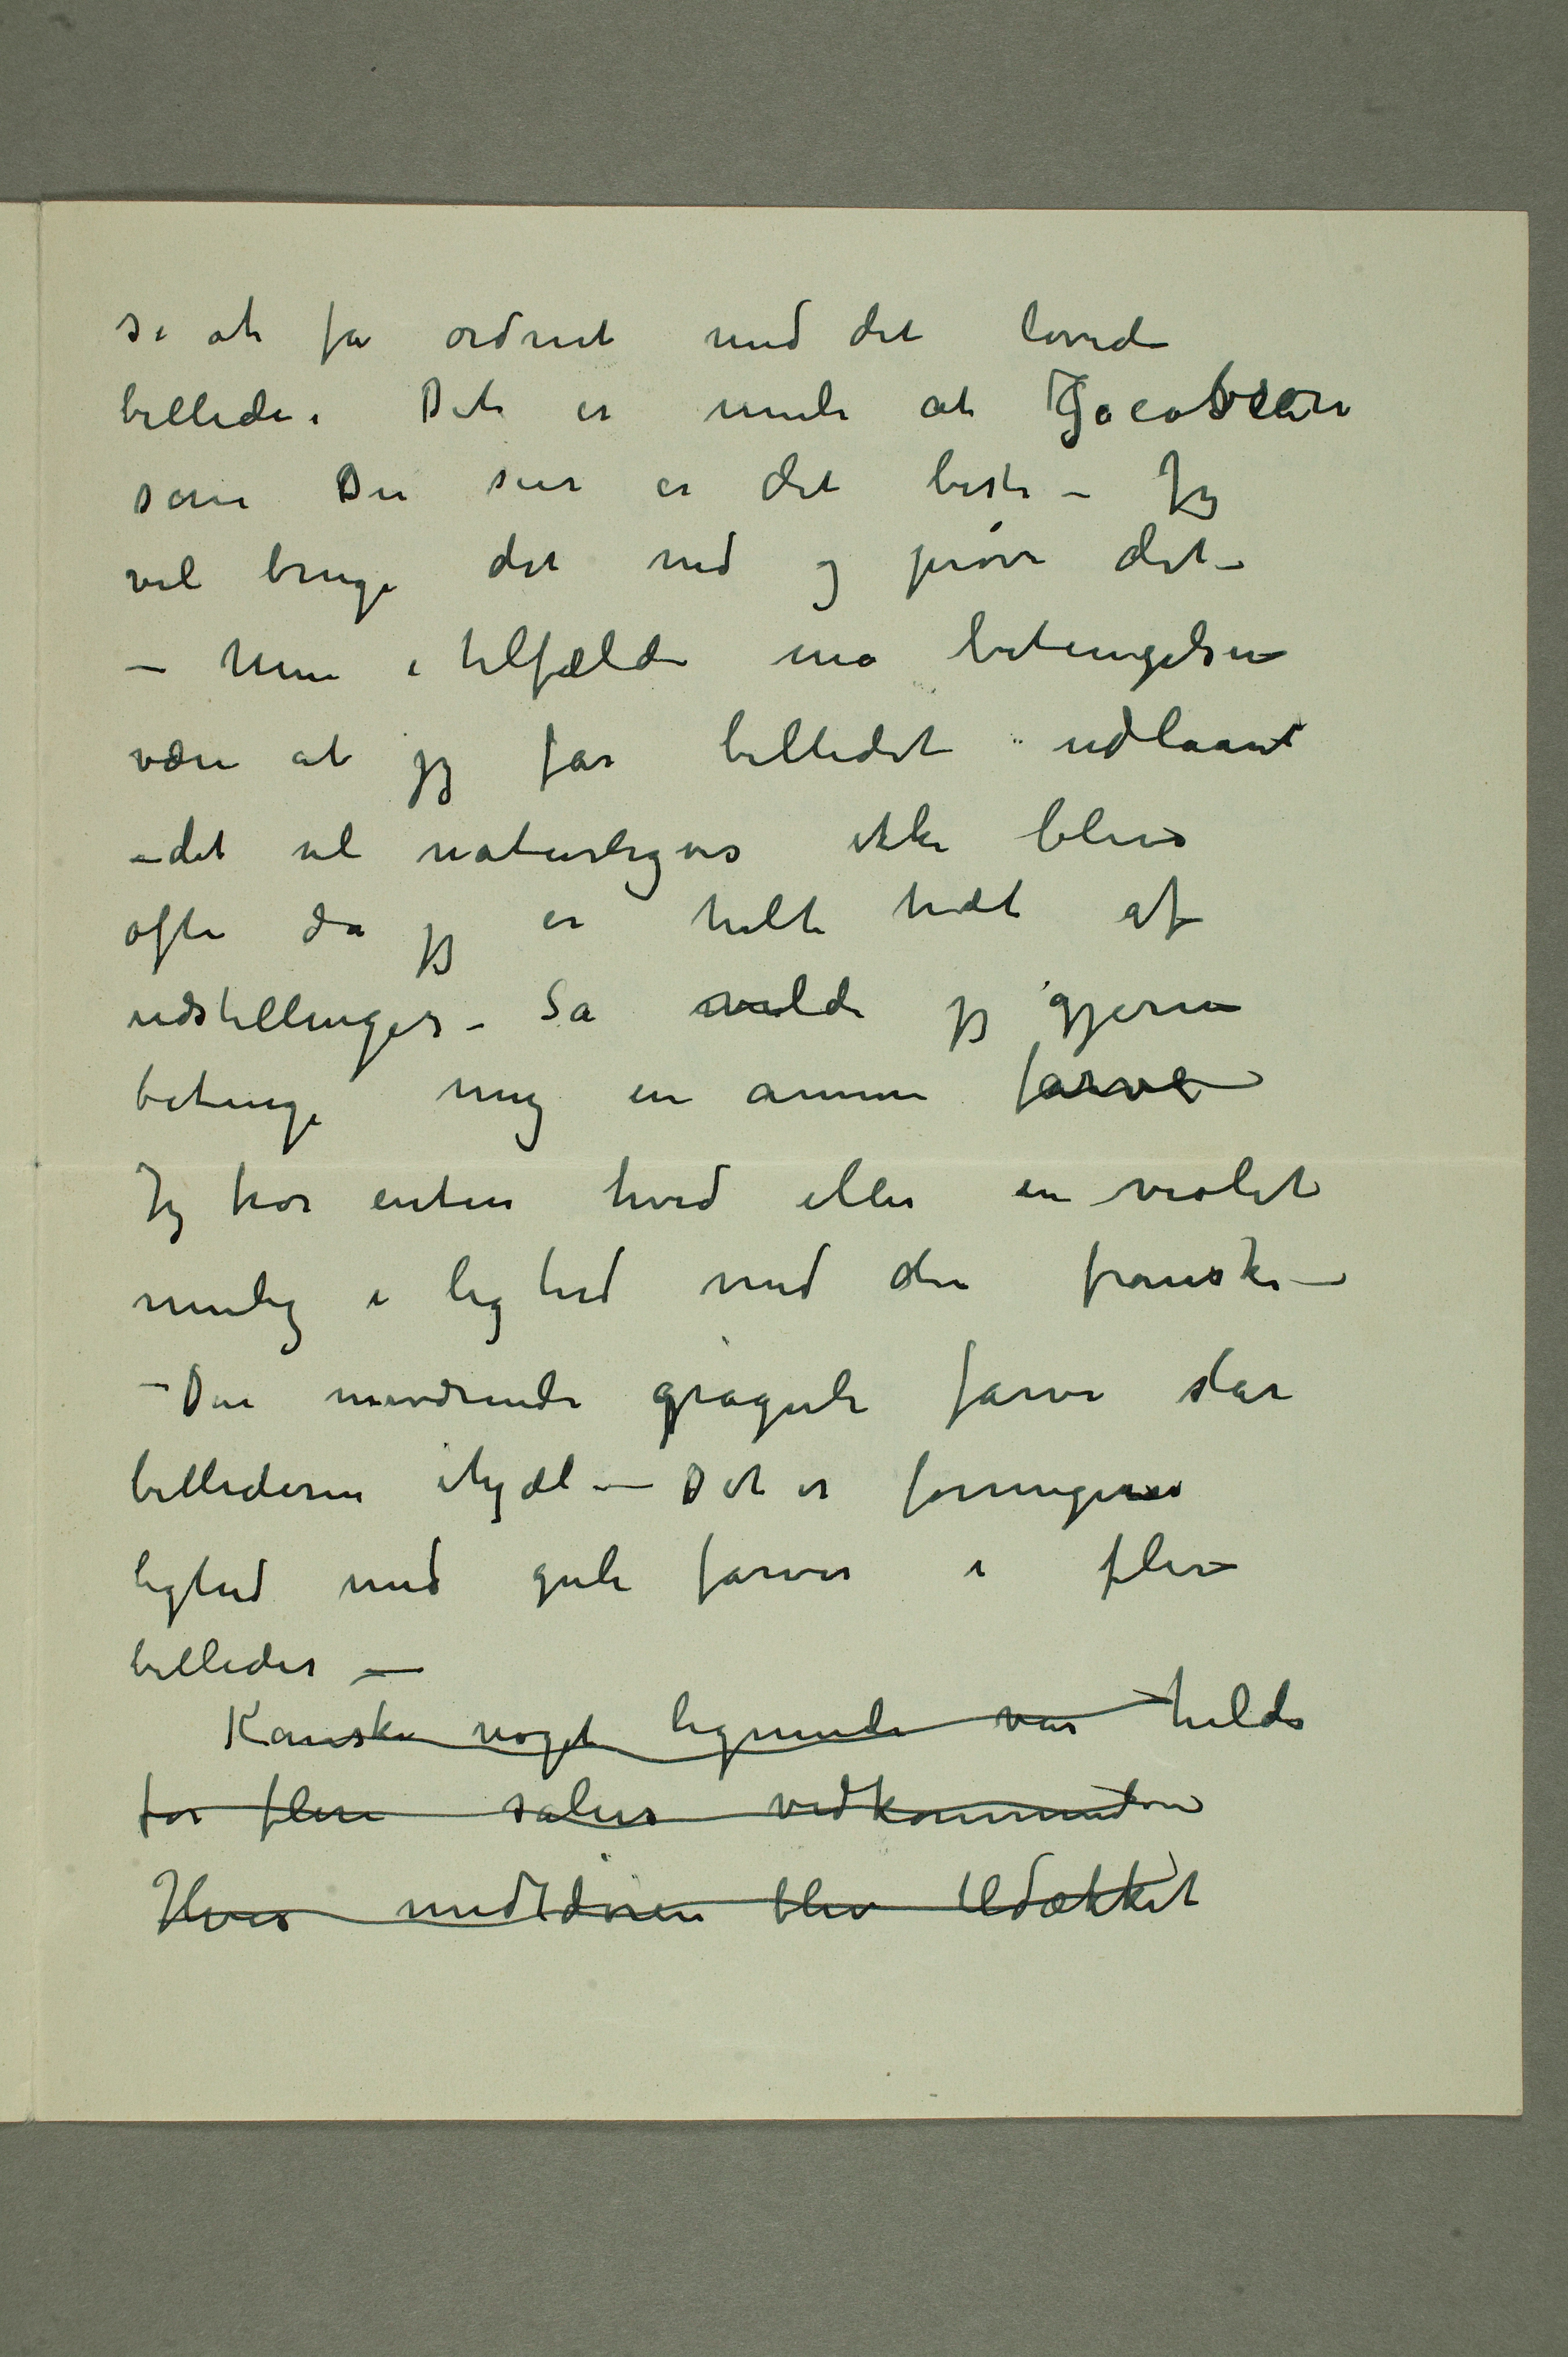 se at få ordnet med det lovede
billede. Det er mulig at Jacobsen
som Du sier er det beste – Jeg
vil bringe det ned og prøve det –
– Men i tilfælde må betingelsen
være at jeg får billedet udlaant
– det vil naturligvis ikke blive
ofte da jeg er helt træt af
udstillinger – Så vilde jeg gjerne
betinge mig en annen farve
Jeg tror enten hvid eller en violet
mulig i lighed med den franske –
– Den nuværende grågule farve slår
billederne ihjæl – Det er
lighed med gule farver i flere
billeder –
Kanske noget lignende var heldig
for flere salers vedkommende
Hvis midtdøren blev tildækket